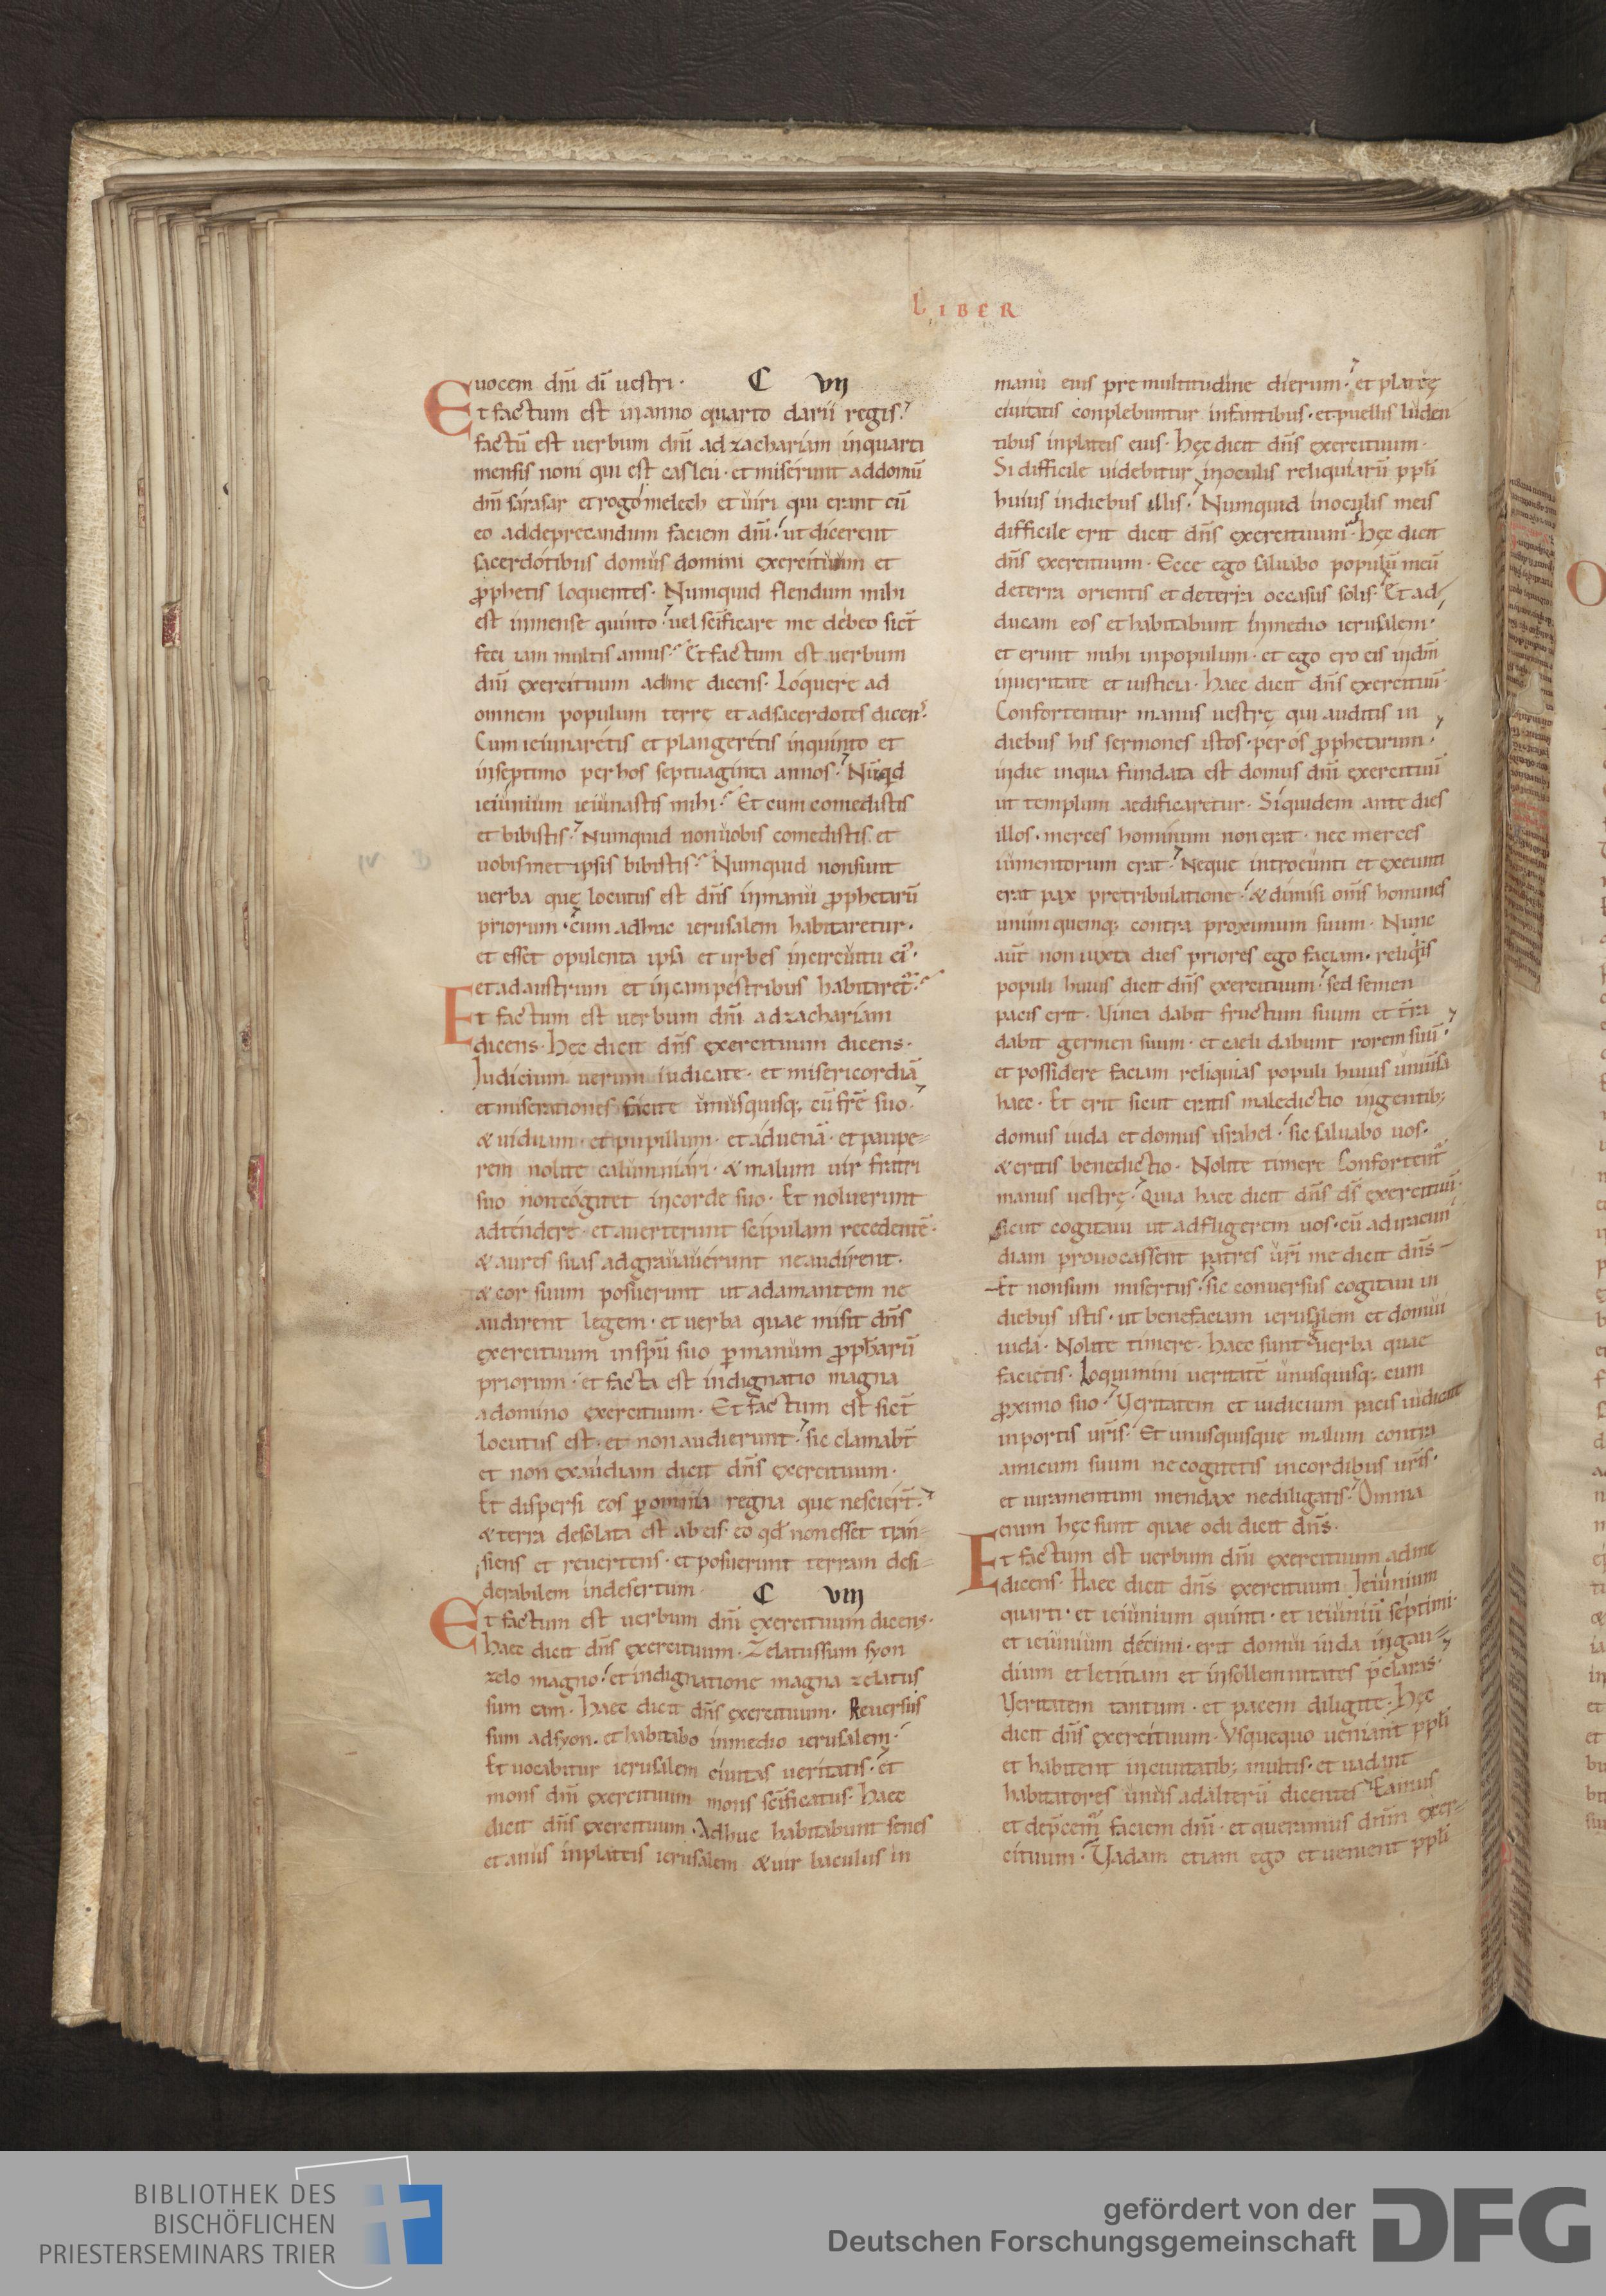 LIBER
uocem dñi di ũestri · C VII
Et factum est in anno quarto darii regis·
factũ est uerbum dñi ad zachariam in quarta
mensis noni qui est casleu· et miserunt ad domũ
dñi sarasar et rogomelech et uiri qui erant cũ
eo ad deprecandum faciem dñi· ut dicerent
sacerdotibus domus domini exercituum et
ꝓphetis loquentes· Numquid flendum mihi
est in mense quinto· uel sc̄ificare me debeo sicт̄
feci iam multis annis· Et factum est uerbum
dñi exercituum ad me dicens· Loquere ad
omnem populum terrę et ad sacerdotes dicens·
Cum ieiunaretis et plangeretis in quinto et
in septimo per hos septuaginta annos· Nũqđ
ieiunium ieiunastis mihi· Et cum comedistis
et bibistis· Numquid non uobis comedistis et
uobismet ipsis bibistis· Numquid non sunt
uerba quę locutus est dñs in manu ꝓphetarũ
priorum· cum adhuc ierusalem habitaretur·
et esset opulenta ipsa et urbes in circuitu ei᾽·
et ad austrum et in campestribus habitaret̃·
Et factum est uerbum dñi ad zachariam
dicens· Hęc dicit dñs exercituum dicens·
Iudicium uerum iudicate· et misericordiã
et miserationes facite unusquisq; cũ fr̃e suo·
& uiduam· et pupillum· et aduenã· et paupe-
rem nolite calumniari· & malum uir fratri
suo non cogitet in corde suo· Et noluerunt
adtendere· et auerterunt scapulam recedentẽ·
& aures suas adgrauauerunt ne audirent·
& cor suum posuerunt ut adamantem ne
audirent legem· et uerba quae misit dñs
exercituum in spũ suo ꝑ manum ꝓphetarũ
priorum· et facta est indignatio magna
a domino exercituum· Et factum est sicт̄
locutus est· et non audierunt· sic clamabт̄
et non exaudiam dicit dñs exercituum·
Et dispersi eos ꝑ omnia regna que nescierт̄·
& terra desolata est ab eis· eo qđ non esset tran-
siens et reuertens· et posuerunt terram desi-
derabilem in desertum· C VIII
Et factum est uerbum dñi exercituum dicens·
Haec dicit dñs exercituum· Zelatus sum syon
zelo magno· et indignatione magna zelatus
sum eam· Haec dicit dñs exercituum· Reuersus
sum ad syon· et habitabo in medio ierusalem·
Et uocabitur ierusalem ciuitas ueritatis· et
mons dñi exercituum mons sc̄ificatus· Haec
dicit dñs exercituum· Adhuc habitabunt senes
et anus in plateis ierusalem & uir baculus in
manu eius pre multitudine dierum· et plateę
ciuitatis conplebuntur infantibus· et puellis luden
tibus in plateis eius· Hęc dicit dñs exercituum·
Si difficile uidebitur in oculis reliquiarũ ppłi
huius in diebus illis· Numquid in oculis meis
difficile erit dicit dñs exercituum· Hęc dicit
dñs exercituum· Ecce ego saluabo populũ meũ
de terra orientis et de terra occasus solis· Et ad
ducam eos et habitabunt in medio ierusalem·
et erunt mihi in populum· et ego ero eis in dm̃
in ueritate et iusticia· Haec dicit dñs exercituũ·
Confortentur manus uestrę qui auditis in
diebus his sermones istos· per os ꝓphetarum·
in die in qua fundata est domus dñi exercituũ
ut templum aedificaretur· Siquidem ante dies
illos· merces hominum non erat· nec merces
iumentorum erat· Neque introeunti et exeunti
erat pax pre tribulatione· & dimisi om̃s homines
unumquemq; contra proximum suum· Nunc
aut̃ non iuxta dies priores ego faciam· reliqis
populi huius dicit dñs exercituum· sed semen
pacis erit· Vinea dabit fructum suum et t̃ra
dabit germen suum· et caeli dabunt rorem suũ·
et possidere faciam reliquias populi huius uniũsa
haec· Et erit sicut eratis maledictio in gentib;
domus iuda et domus israhel· sic saluabo uos·
& eritis benedictio· Nolite timere Confortent᷑
manus uestrę· Quia haec dicit dñs ds̃ exercituũ·
Sicut cogitaui ut adfligerem uos· cũ ad iracun
diam prouocassent patres ũri me dicit dñs
Et non sum misertus· sic conuersus cogitaui in
diebus istis· ut benefaciam ierusalem et domui
iuda· Nolite timere· Haec sunt uerba quae
facietis· Loquimini ueritatẽ unusquisq; cum
ꝓximo suo· Veritatem et iudicium pacis iudicate
in portis ur̃is· Et unusquisque malum contra
amicum suum ne cogitetis in cordibus ur̃is·
et iuramentum mendax ne diligatis· Omnia
enim hęc sunt quae odi dicit dñs·
Et factum est uerbum dñi exercituum ad me
dicens· Haec dicit dñs exercituum Ieiunium
quarti· et ieiunium quinti· et ieiuniũ septimi·
et ieiunium decimi· erit domui iuda in gau-
dium et letitiam et in sollemnitates p̃claras·
Veritatem tantum· et pacem diligite· Hęc
dicit dñs exercituum· Vsquequo ueniant ppłi
et habitent in ciuitatib; multis· et uadant
habitatores unus ad alterũ dicentes Eamus
et dep̃cem᷑ faciem dñi· et queramus dñm exer-
cituum· Vadam etiam ego et uenient ppłi
BIBLIOTHEK DES
BISCHÖFLICHEN
PRIESTERSEMINARS TRIER
gefördert von der
Deutschen Forschungsgemeinschaft
DFG